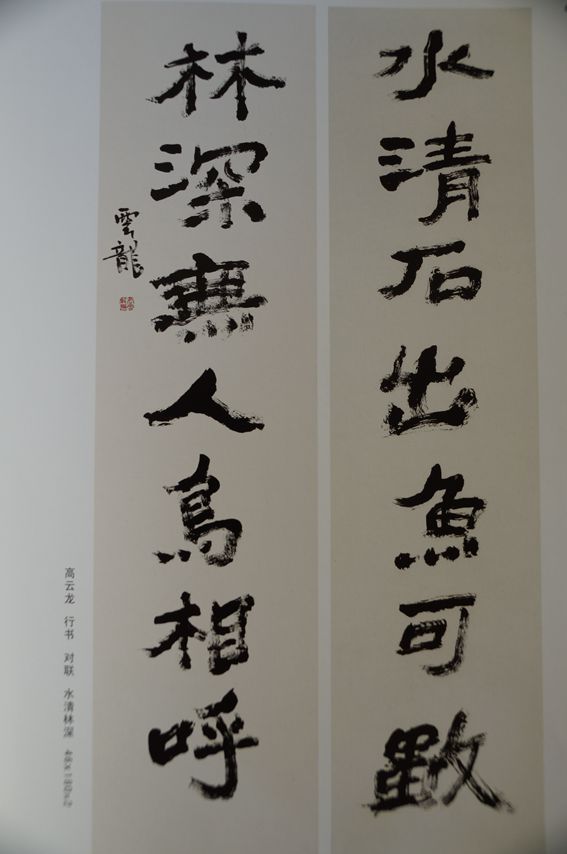 水清石出魚可數
林深無人鳥相呼
雲龍
高云龙 行书 对联 水清林深